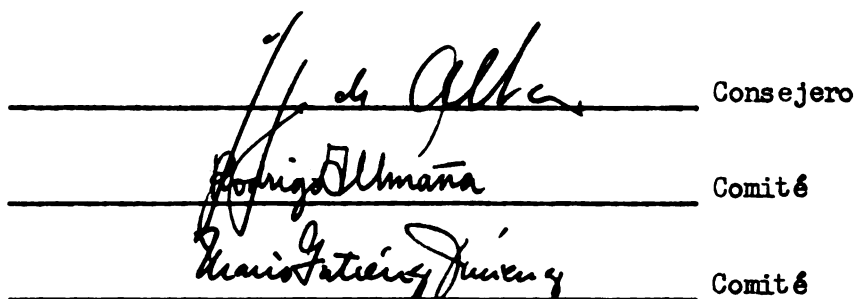 J. de Alba Consejero
Rodrigo Umaña Comité
Mario Gutiérrez Jiménez Comité